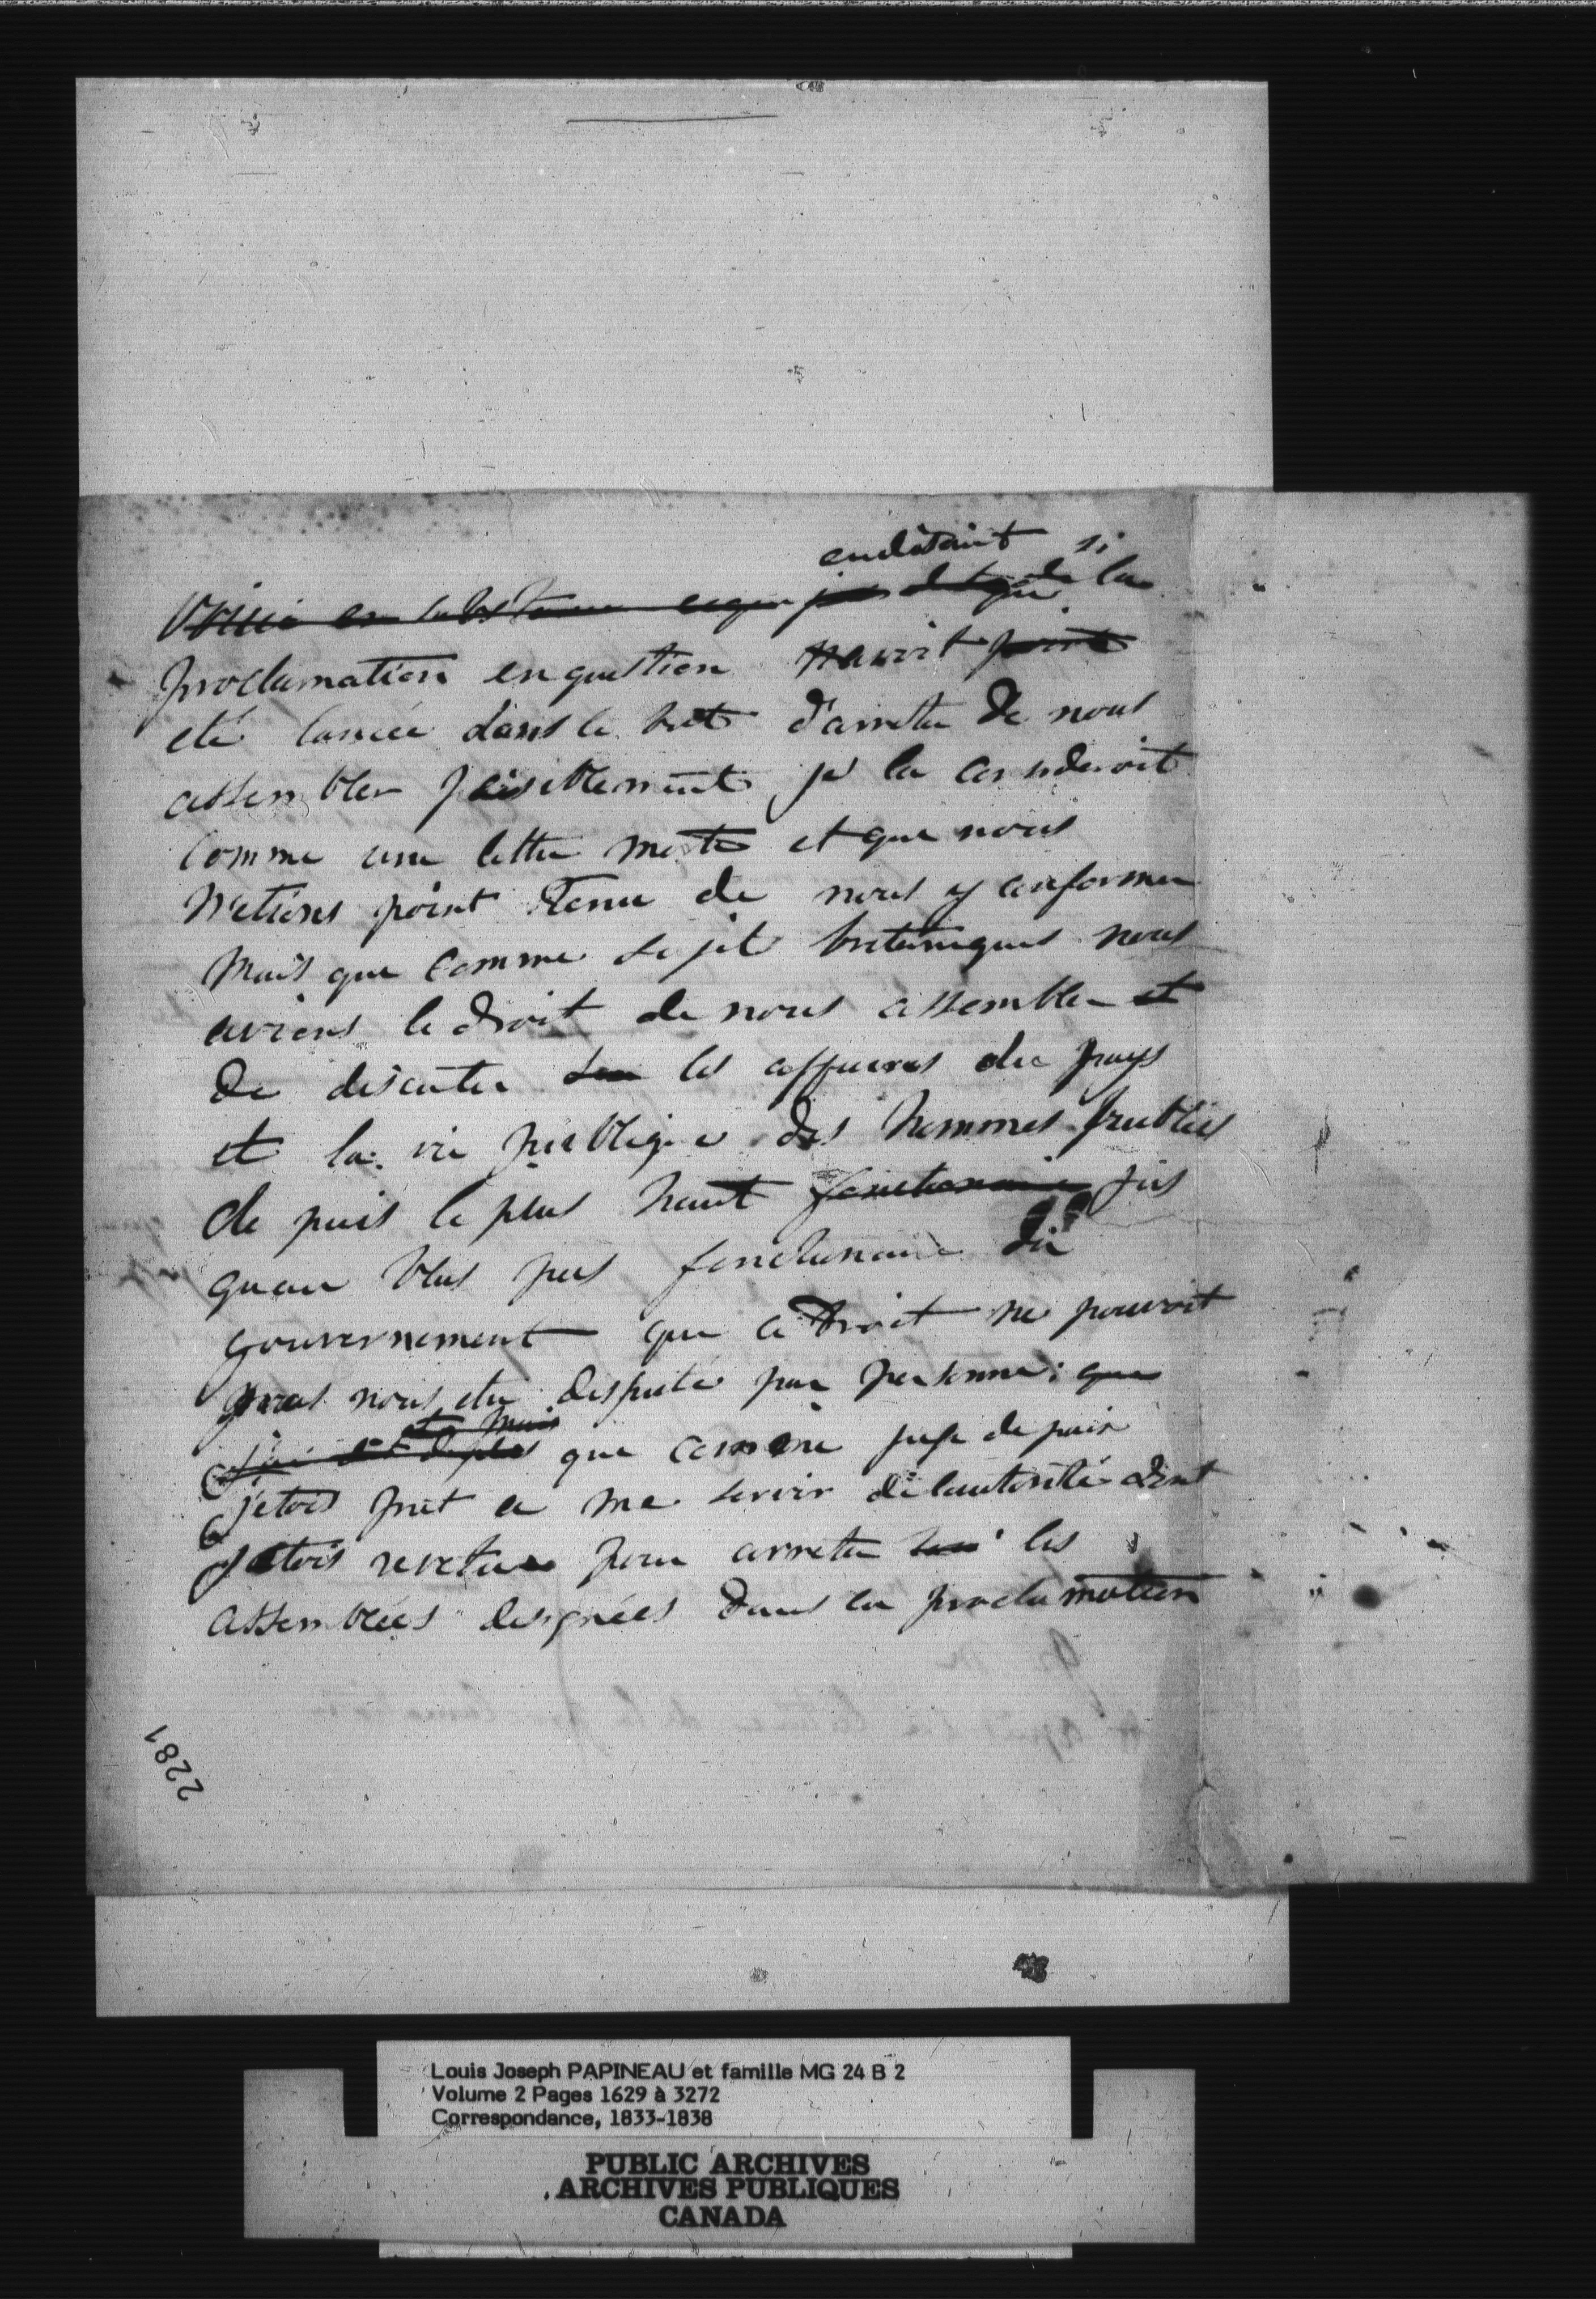 en disant si
Voici en substance ce que j'ai dit que la
proclamation en question n'avoit point
eté lancée dans le but d'arreter de nous
assembler paisiblement je la considerois
comme une lettre morte et que nous
n'etions point tenu de nous y conformer
mais que comme sujet britaniques nous
avions le droit de nous assembler et
de discuter les affaires du pays
et la vie publique des hommes publics
de puis le plus haut fonctionnaire jus
quau plus pas fonctionaire du
gouvernement que ce droit ne pouvoit
pas nous etre disputé par personne; que
mais
j'ai dit de plus que comme juge de paix
j'etois pret a me servir de lautorité dont
j'etois revetu pour arreter les
assemblées designées dans la proclamation
2281
Louis Joseph PAPINEAU et famille MG 24 B 2
Volume 2 Pages 1629 à 3272
Correspondance, 1833-1838
PUBLIC ARCHIVES
ARCHIVES PUBLIQUES
CANADA